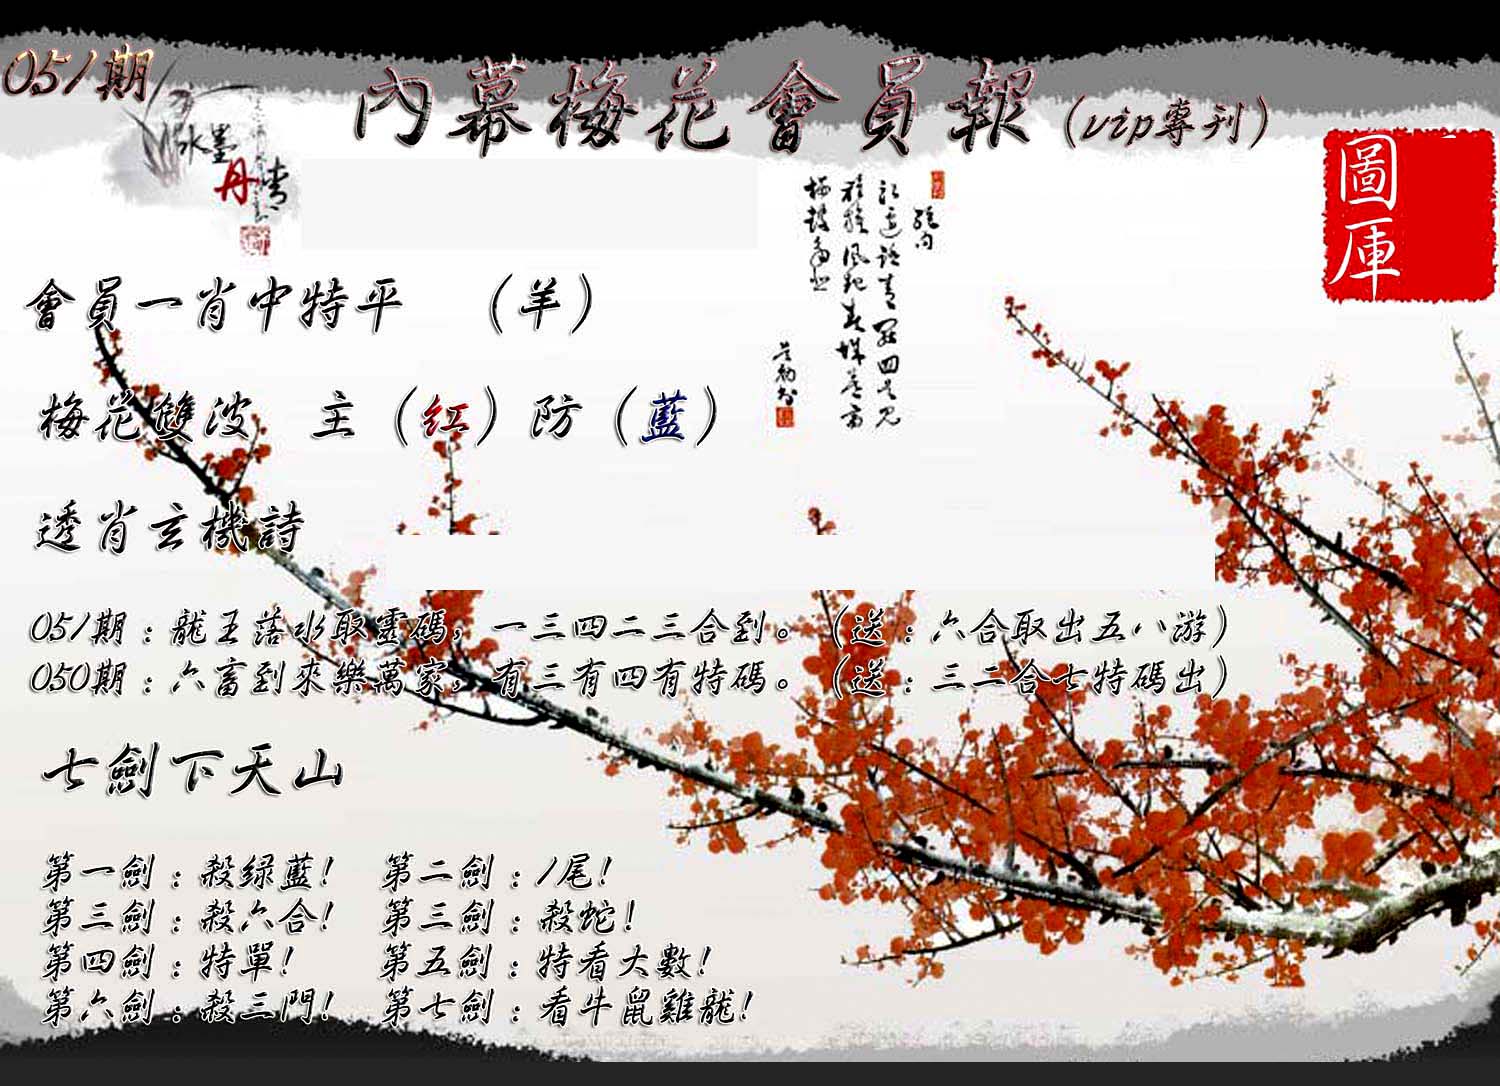 051期
內幕梅花會員報（vip專刊）
水墨
丹青
圖庫
會員一肖中特平　（羊）
梅花雙波　主（红）防（藍）
透肖玄機詩
051期：龍王落水取靈碼，一三四二三合到。（送：六合取出五八游）
050期：六畜到來樂萬家，有三有四有特碼。（送：三二合七特碼出）
七劍下天山
第一劍：殺绿藍！　第二劍：1尾！
第三劍：殺六合！　第三劍：殺蛇！
第四劍：特單！　第五劍：特看大數！
第六劍：殺三門！　第七劍：看牛鼠雞龍！